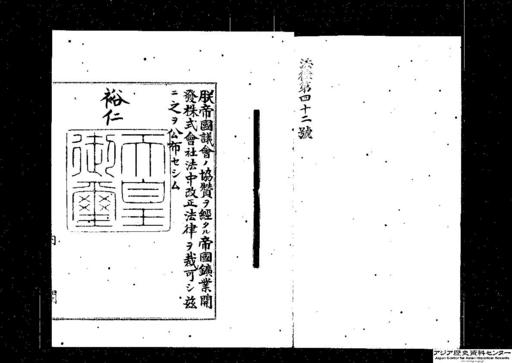 法律第四十二號
朕帝國議會ノ協贊ヲ經タル帝國鑛業開
發株式會社法中改正法律ヲ裁可シ茲
ニ之ヲ公布セシム
裕仁
天皇
御璽
内
閣
アジア歴史資料センター
Japan Center for Asian Historical Records